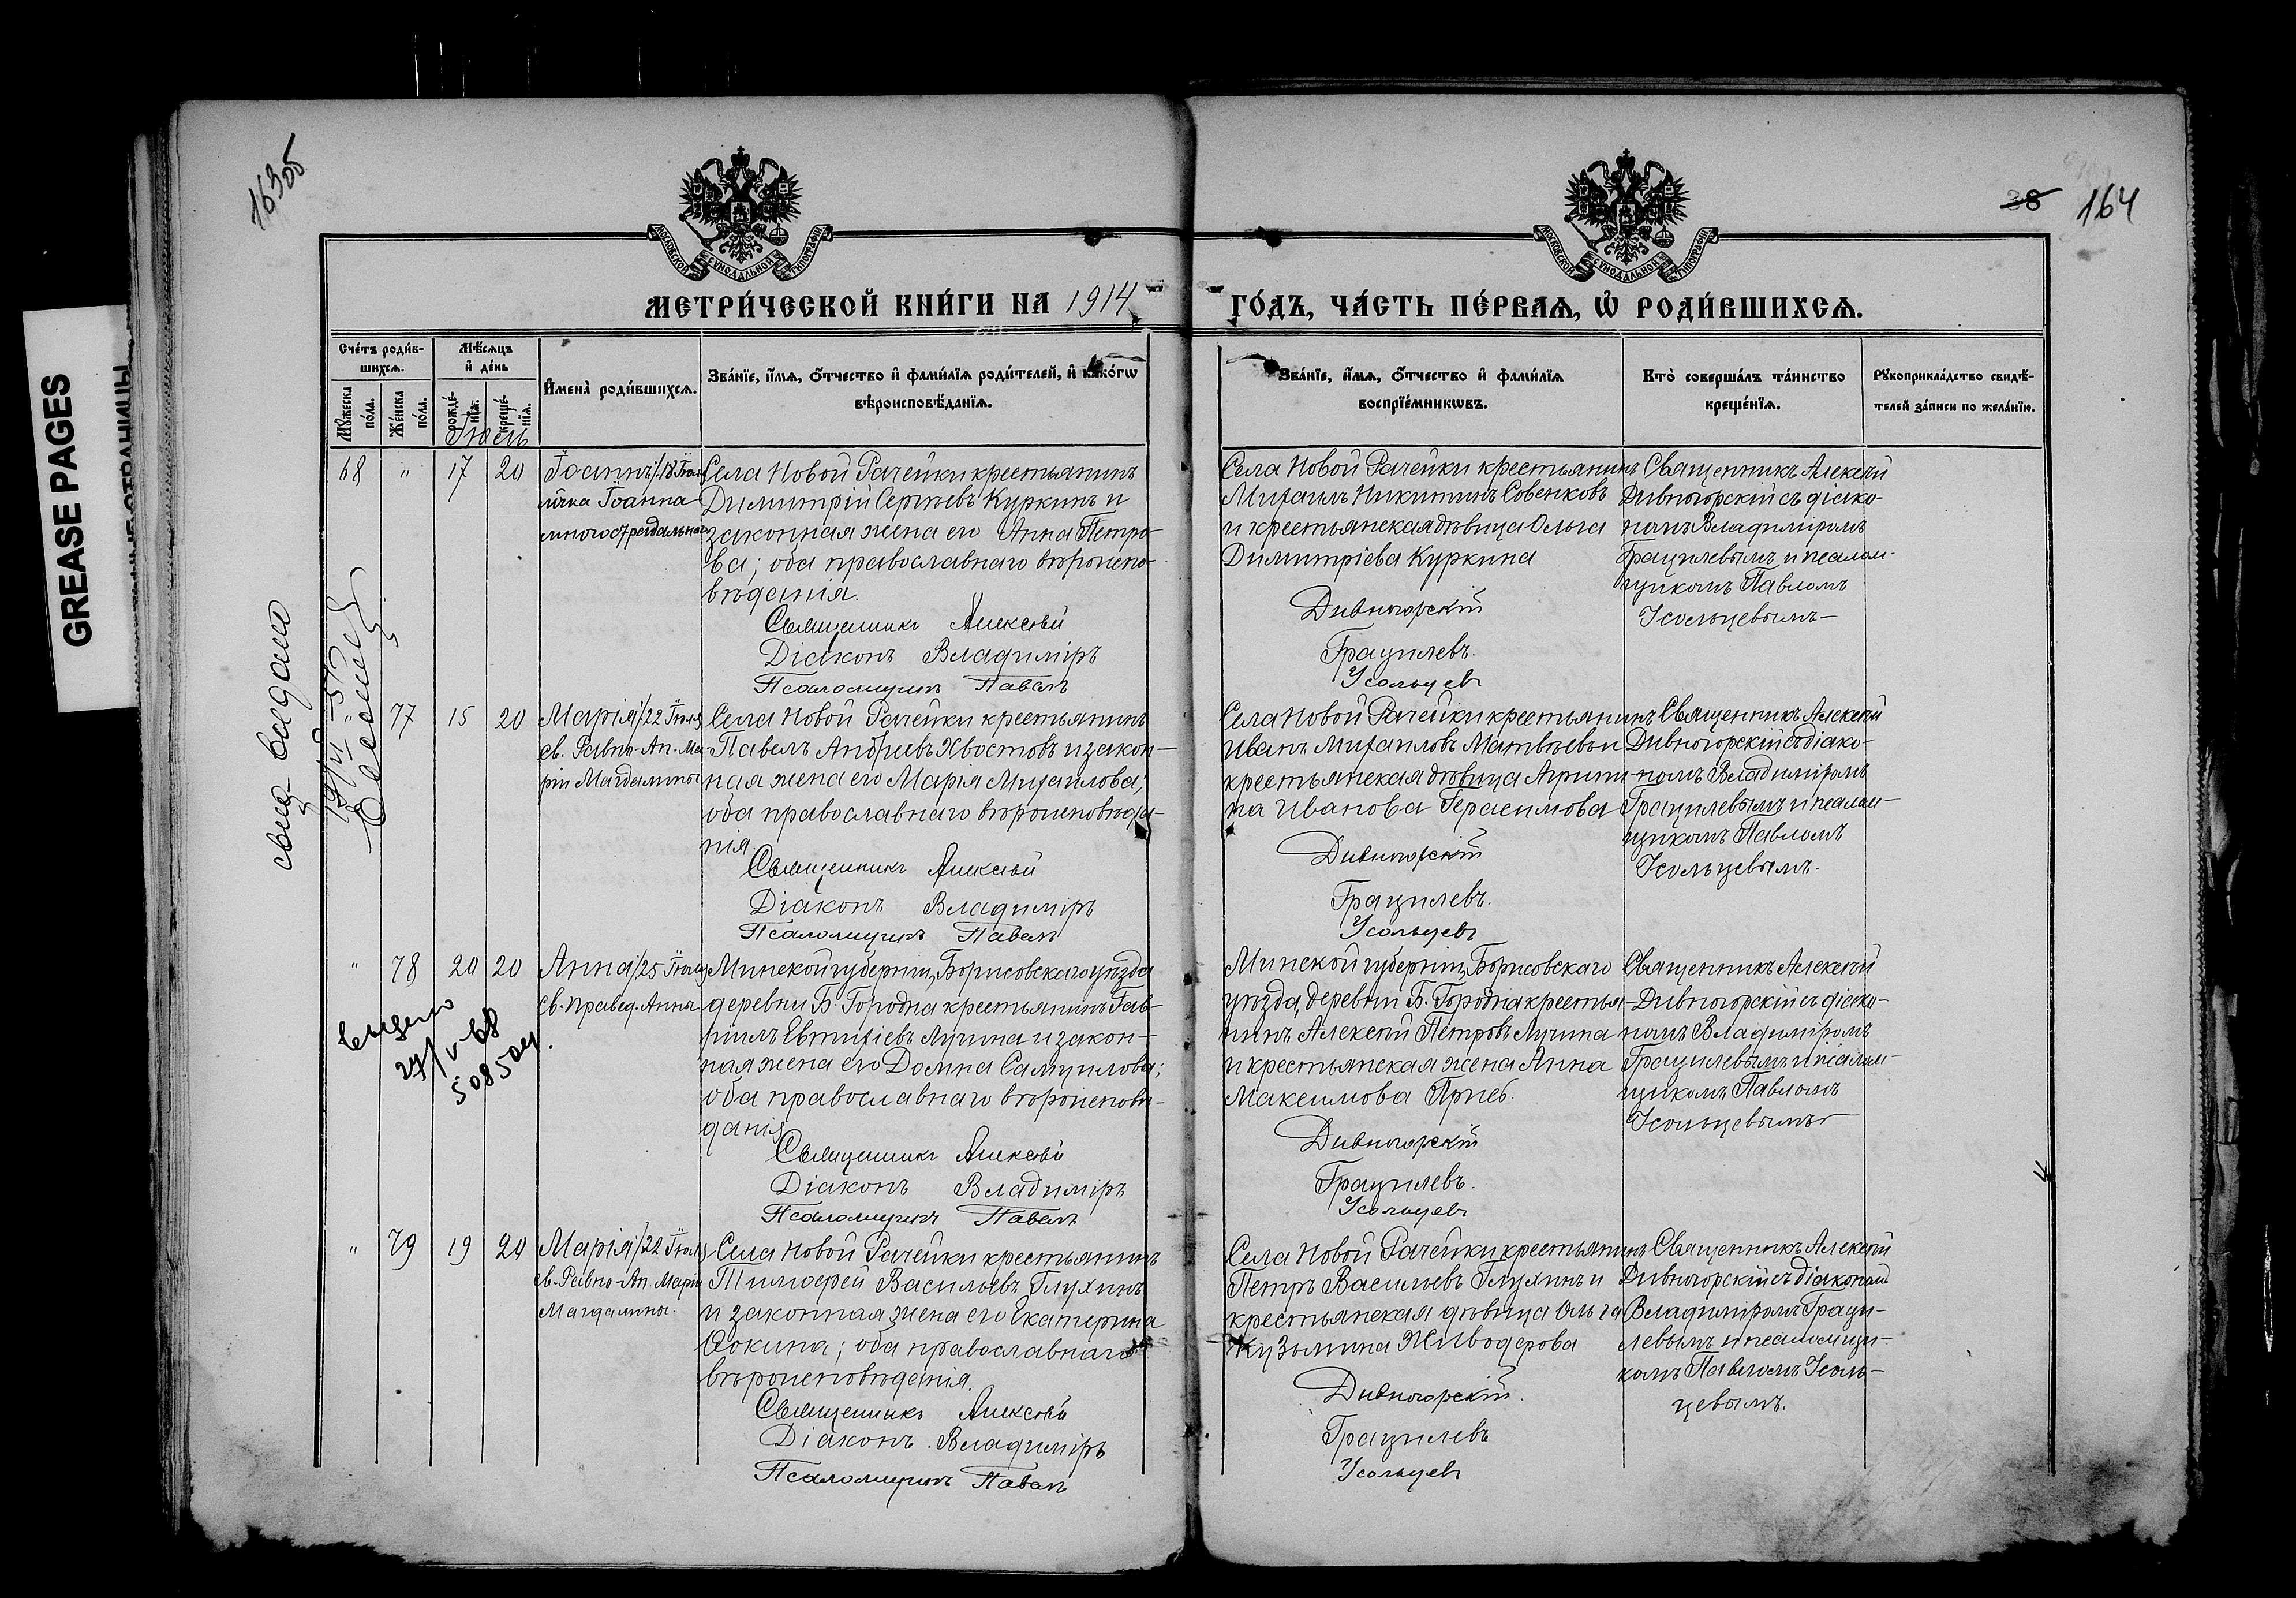 GREASE PAGES
163об
38 164
МОСКОВСКОЙ СѴНОДАЛЬНОЙ ТИПОГРАФІИ
МОСКОВСКОЙ СѴНОДАЛЬНОЙ ТИПОГРАФІИ
МЕТРИ́ЧЕСКОЙ КНИ́ГИ НА 1914
ГО́ДЪ, ЧА́СТЬ ПЕ́РВАѦ, Ѡ҆ РОДИ́ВШИХСѦ.
Сче́тъ роди́в-
шихсѧ.
Мꙋ́жеска по́ла.
Же́нска по́ла.
Мѣ́сѧцъ
и҆ де́нь
рожде́-нїѧ.
креще́-нїѧ.
И҆мена̀ роди́вшихсѧ.
Зва́нїе, и҆́мѧ, ѻ҆́тчество и҆ фами́лїѧ роди́телей, и҆ како́гѡ
вѣроисповѣ́данїѧ.
Зва́нїе, и҆́мѧ, ѻ҆́тчество и҆ фами́лїѧ
воспрїе́мникѡвъ.
Кто̀ соверша́лъ та́инство
креще́нїѧ.
Рꙋкоприкла́дство свидѣ́-
телей за́писи по жела́нїю.
Іюль
68 " 17 20
Іоаннъ/18 Іюля
Іоанна
многострадальнаго
Села Новой Рачейки крестьянинъ
Димитрій Сергѣевъ Куркинъ и
законная жена его Анна Петро-
ва; оба православнаго вѣроиспо-
вѣданія.
Священникъ Алексѣй
Діаконъ Владиміръ
Псаломщикъ Павелъ
Села Новой Рачейки крестьянинъ
Михаилъ Никитинъ Совенковъ
и крестьянская дѣвица Ольга
Димитріева Куркина
Дивногорскій
Грацилевъ.
Усольцевъ
Священникъ Алексѣй
Дивногорскій съ діако-
номъ Владиміромъ
Грацилевымъ и псалом-
щикомъ Павломъ
Усольцевымъ
" 77 15 20
Марія/22 Іюля
св. Равно-Ап. Ма-
ріи Магдалины
Села Новой Рачейки крестьянинъ
Павелъ Андреевъ Хвостовъ и закон-
ная жена его Марія Михаилова;
оба православнаго вѣроисповѣда-
нія
Священникъ Алексѣй
Діаконъ Владиміръ
Псаломщикъ Павелъ
Села Новой Рачейки крестьянинъ
Иванъ Михаиловъ Матвѣевъ и
крестьянская дѣвица Агриппи-
на Иванова Герасимова
Дивногорскій
Грацилевъ.
Усольцевъ
Священникъ Алексѣй
Дивногорскій съ діако-
номъ Владиміромъ
Грацилевымъ и псалом-
щикомъ Павломъ
Усольцевымъ.
" 78 20 20
Анна/25 Іюля
св. Правед. Анны
Минской губерніи, Борисовскаго уѣзда
деревни Б. Городна крестьянинъ Гав-
ріилъ Евтихіевъ Лучина и закон-
ная жена его Домна Самуилова;
оба православнаго вѣроисповѣ-
данія
Священникъ Алексѣй
Діаконъ Владиміръ
Псаломщикъ Павелъ
Минской губерніи, Борисовскаго
уѣзда, деревни Б. Городна крестья-
нинъ Алексѣй Петровъ Лучина
и крестьянская жена Анна
Максимова
Дивногорскій
Грацилевъ.
Усольцевъ
Священникъ Алексѣй
Дивногорскій съ діако-
номъ Владиміромъ
Грацилевымъ и псалом-
щикомъ Павломъ
Усольцевымъ
27/V-68
" 79 19 20
Марія/22 Іюля
св. Равно-Ап. Маріи
Магдалины.
Села Новой Рачейки крестьянинъ
Тимофей Васильевъ Глухинъ
и законная жена его Екатерина
Фокина; оба православнаго
вѣроисповѣданія.
Священникъ Алексѣй
Діаконъ Владиміръ
Псаломщикъ Павелъ
Села Новой Рачейки крестьянинъ
Петръ Васильевъ Глухинъ и
крестьянская дѣвица Ольга
Кузьмина Живодерова
Дивногорскій.
Грацилевъ
Усольцевъ
Священникъ Алексѣй
Дивногорскій съ діакономъ
Владиміромъ Граци-
левымъ и псаломщи-
комъ Павломъ Усоль-
цевымъ.